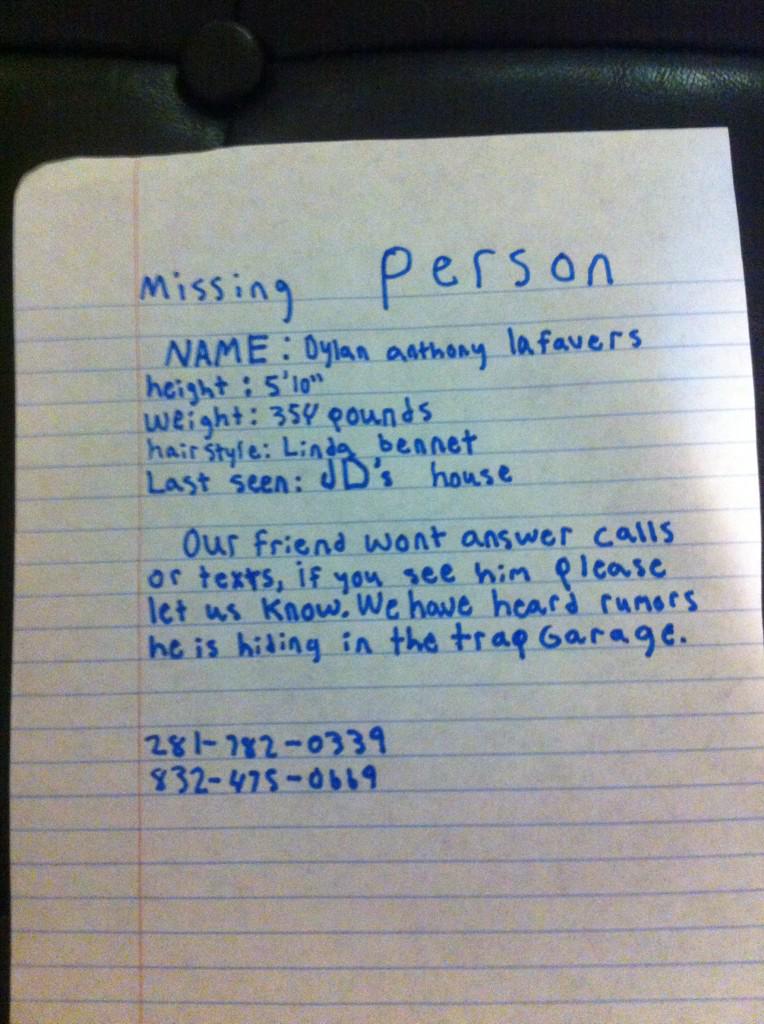 Missing Person
NAME: Dylan anthony lafavers
height: 5'10"
weight: 354 pounds
hairstyle: Linda bennet
Last seen: JD's house
Our friend wont answer calls
or texts, if you see him please
let us know. We have heard rumors
he is hiding in the trap Garage.
281-782-0339
832-475-0669